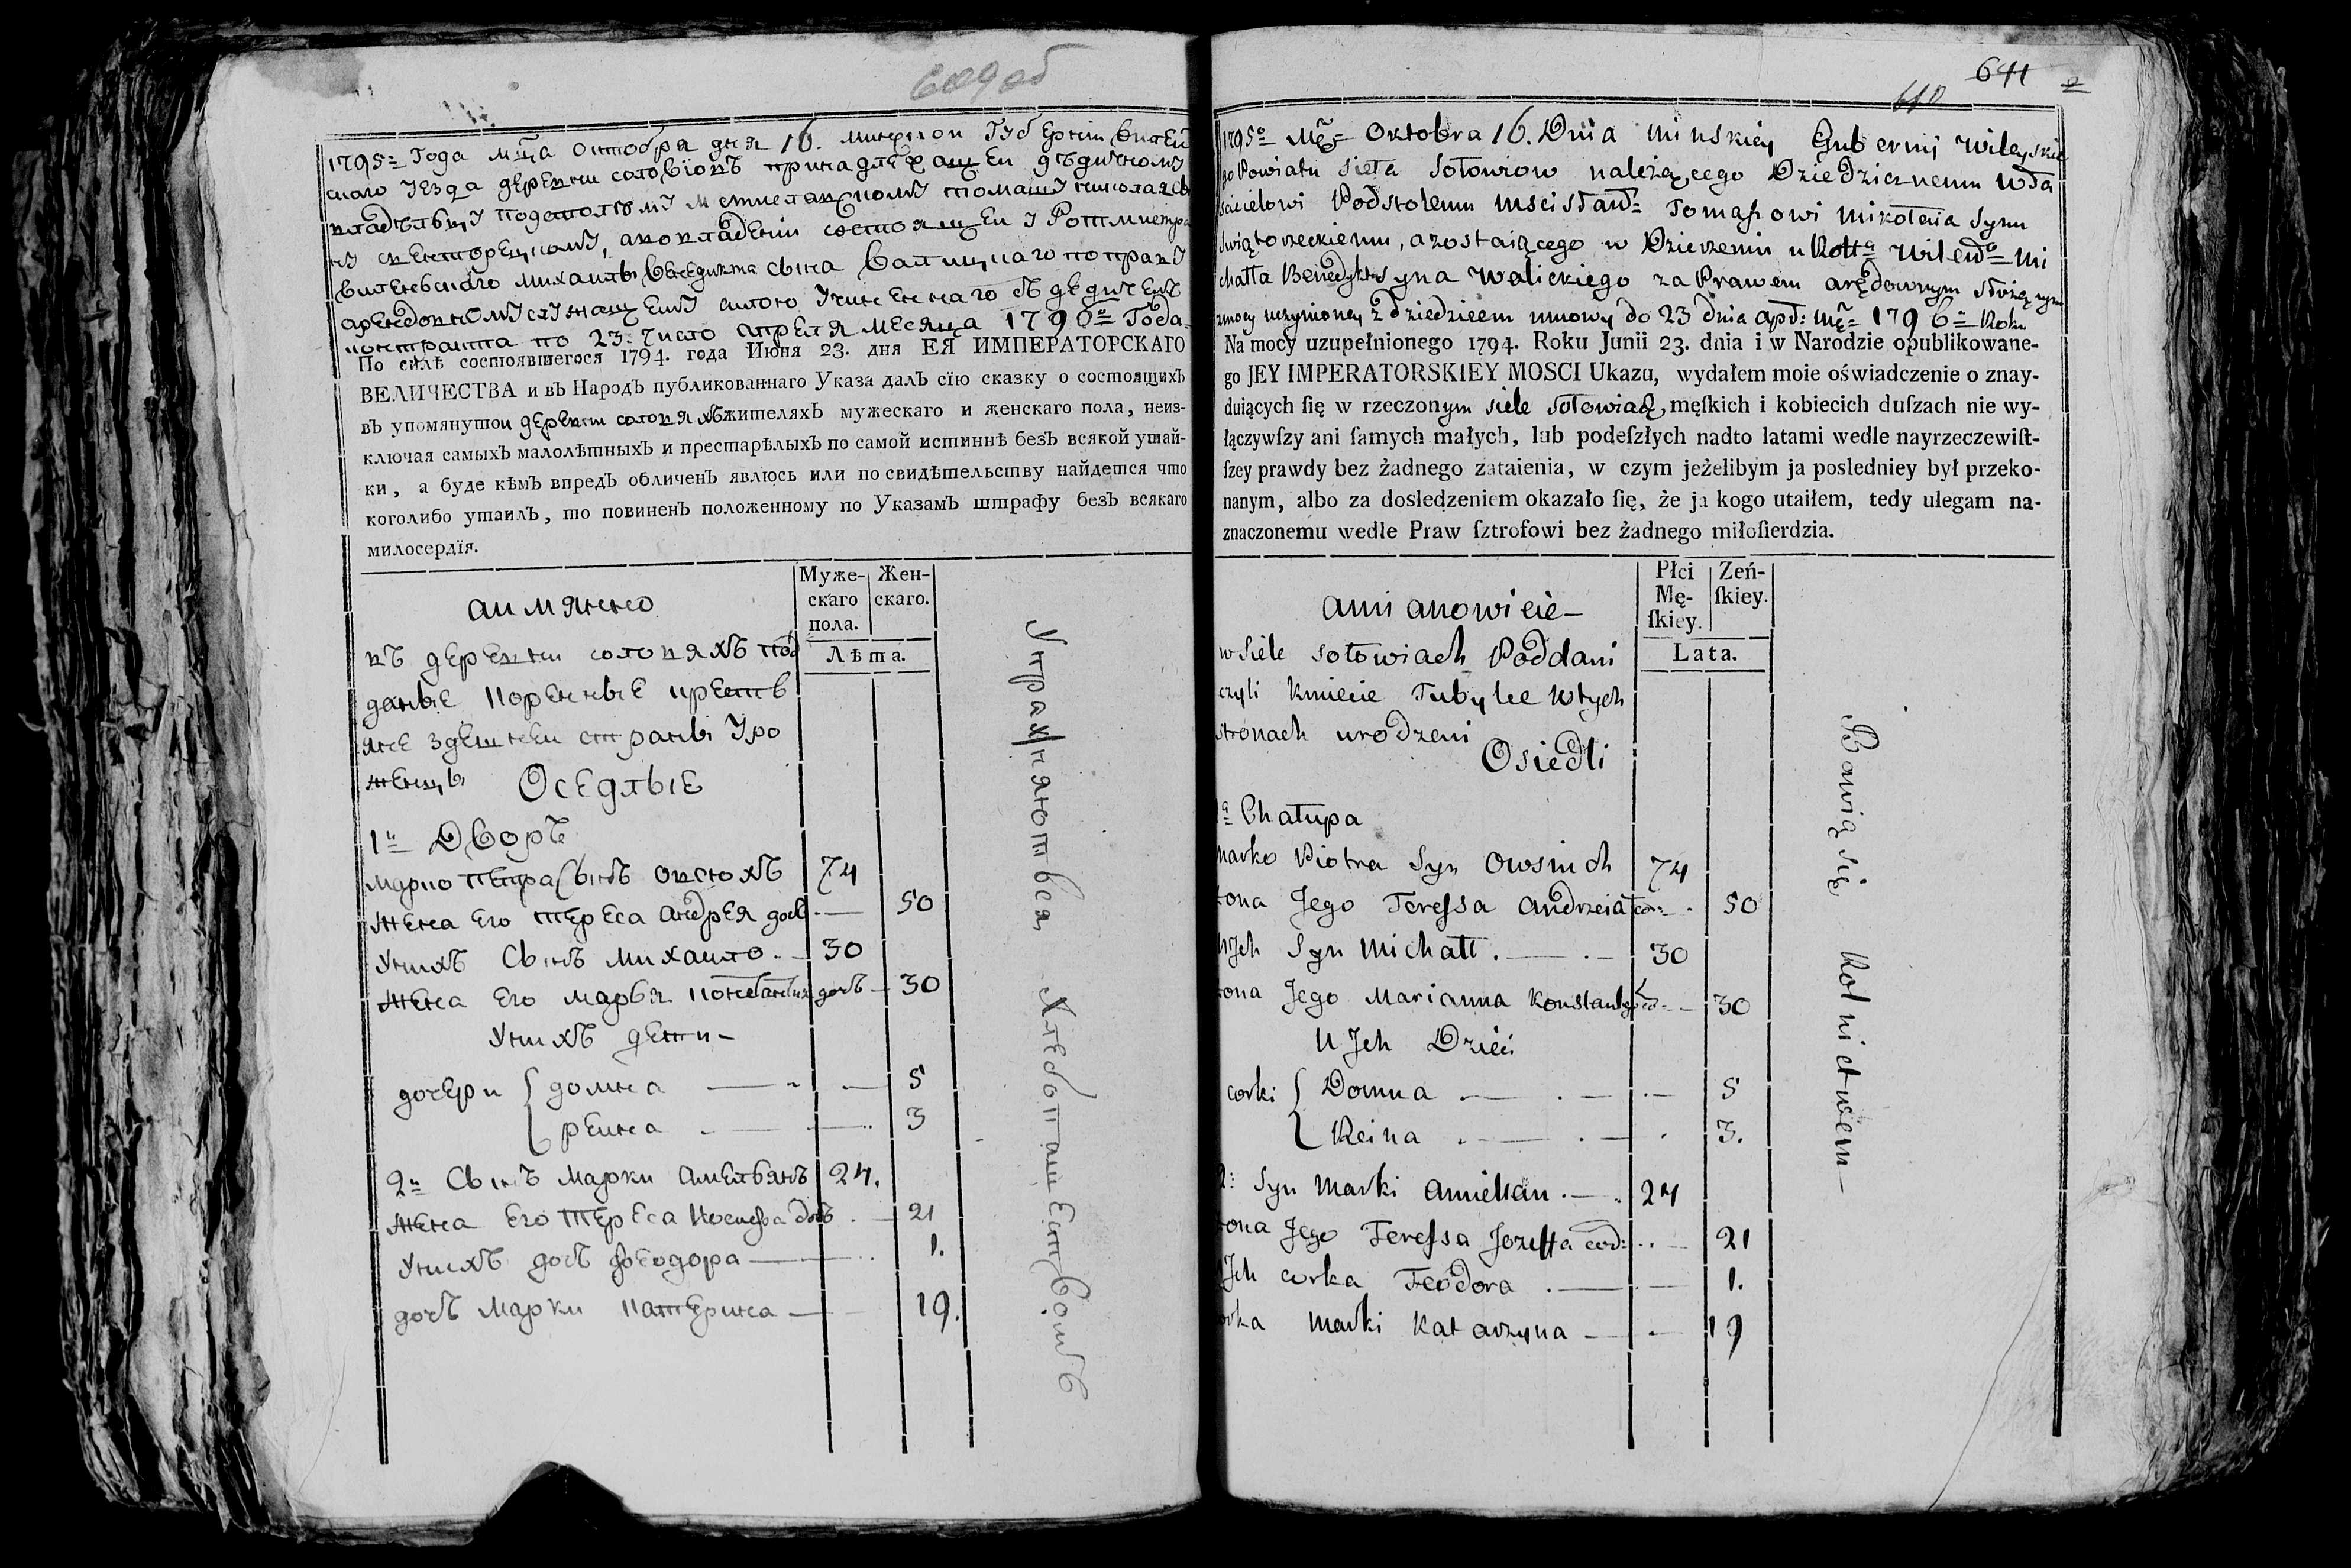 609 об
1795= Года мца октобра дня 16. минской Губернїи Вилей
скаго Уезда деревни соловїовъ принадлежащеи дѣдичному
владѣльцу подстолому мстиславскому томашу николая сы
ну свенторецкому, а во владенїи состоящеи у Ротмистра
виленьского михаилы Бенедикта сына Валицкаго по праву
арендовному служащему силою учиненнаго съ дедичемъ
контракта по 23. число апреля месяца 1796го Года
По силѣ состоявшегося 1794. года Июня 23. дня ЕЯ ИМПЕРАТОРСКАГО
ВЕЛИЧЕСТВА и въ Народъ публикованнаго Указа далъ сїю сказку о состоящихъ
въ упомянутои деревни соловяхъ жителяхъ мужескаго и женскаго пола, неиз-
ключая самыхъ малолѣтныхъ и престарѣлыхъ по самой истиннѣ безъ всякой утай-
ки, а буде кѣмъ впредъ обличенъ явлюсь или по свидѣтельству найдется что
коголибо утаилъ, то повиненъ положенному по Указамъ штрафу безъ всякаго
милосердїя.
Муже-скаго пола. Жен-скаго.
Лѣта.
аимянно
въ деревни соловяхъ под
даные коренные крестъ
яне здешнеи страны Уро
женцы Оседлые
1й Дворъ
Марко петра сынъ овсюхъ 74
жена его тереса андрея дочь — 50
Унихъ Сынъ михаило — 30
Жена его марья константия дочь — 30
Унихъ дети —
дочери { домна — 5
реина — 3
2й Сынъ Марки амельянъ 24.
жена его Тереса Иосифа дочь — 21
Унихъ дочь феодора — 1.
дочь Марки катерина — 19.
Упражняются Хлебопашествомъ
641
610
1795o Mca= Oktobra 16. Dnia Minskiey Gubernij Wileyskie
go Powiatu Sieła Sołowiow należącego Dziedzicznemu Wła
scicielowi Podstolemu Mscisław= Tomaszowi Mikołaia Synu
Swiątorzeckiemu, a zostaiącego w Dzierzeniu u Rott= Wileń= Mi
chałła Benedykta Syna Walickiego za Prawem arędownym służącym
z mocy uczynioney z dziedzicem umowy do 23 dnia apr: mca= 1796= Roku
Na mocy uzupełnionego 1794. Roku Junii 23. dnia i w Narodzie opublikowane-
go JEY IMPERATORSKIEY MOSCI Ukazu, wydałem moie oświadczenie o znay-
duiących ſię w rzeczonym siele Sołowiach, męſkich i kobiecich duſzach nie wy-
łączywſzy ani ſamych małych, lub podeſzłych nadto latami wedle nayrzeczewiſt-
ſzey prawdy bez żadnego zataienia, w czym jeżelibym ja posledniey był przeko-
nanym, albo za dosledzeniem okazało ſię, że ja kogo utaiłem, tedy ulegam na-
znaczonemu wedle Praw ſztrofowi bez żadnego miłoſierdzia.
Płci Mę-ſkiey. Zeń-ſkiey.
Lata.
ami anowicie —
w Siele Sołowiach Poddani
czyli Kmiecie Tubylce w tych
stronach urodzeni
Osiedli
1a Chałupa
Marko Piotra Syn Owsiuch 74
żona Jego Teressa Andrzeia cor: — 50
U Ich Syn Michałł — 30
żona Jego Marianna Konstantego cor: — 30
U Jch Dzieci
corki { Domna — 5
Reina — 3.
2: Syn Marki Amiellian — 24
żona Jego Teressa Jozeffa cor: — 21
U Jch corka Teodora — 1.
corka Marki Katarzyna — 19
Bawią się Rolnictwem —